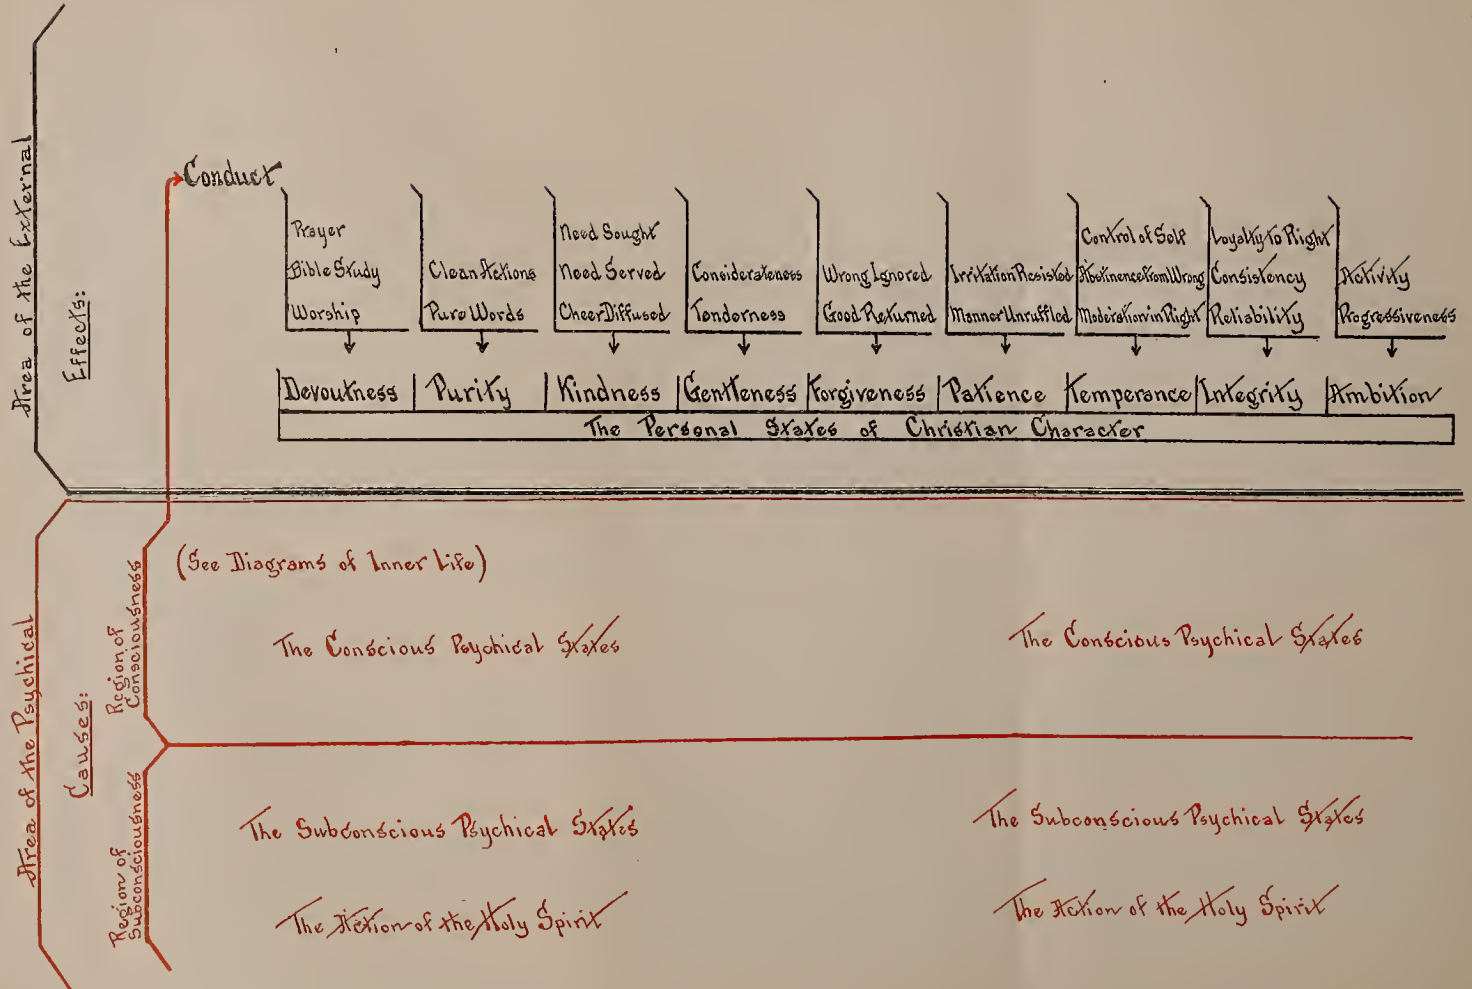 Area of the External
Effects:
Conduct
Prayer
Bible Study
Worship
Clean Actions
Pure Words
Need Sought
Need Served
Cheer Diffused
Considerateness
Tenderness
Wrong Ignored
Good Returned
Irritation Resisted
Manner Unruffled
Control of Self
Abstinence from Wrong
Moderation in Right
Loyalty to Right
Consistency
Reliability
Activity
Progressiveness
Devoutness
Purity
Kindness
Gentleness
Forgiveness
Patience
Temperance
Integrity
Ambition
The Personal States of Christian Character
Area of the Psychical
Causes:
Region of
Consciousness
(See Diagrams of Inner Life)
The Conscious Psychical States
The Conscious Psychical States
Region of
Subconsciousness
The Subconscious Psychical States
The Subconscious Psychical States
The Action of the Holy Spirit
The Action of the Holy Spirit